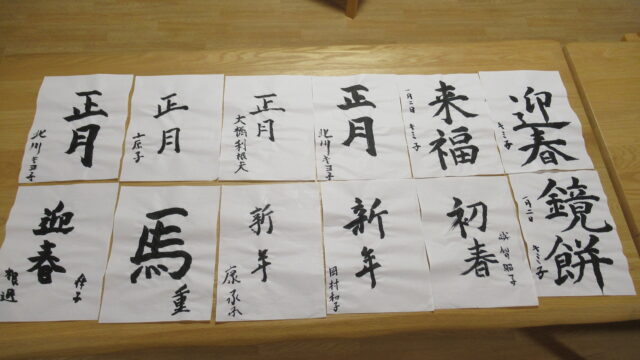 正月
北川キヨ子
正月
正月
大橋利根夫
正月
北川キヨ子
来福
一月二日 キミ子
迎春
キミ子
迎春
馬
重
新年
新年
岡村和子
初春
鏡餅
一月二日 キミ子